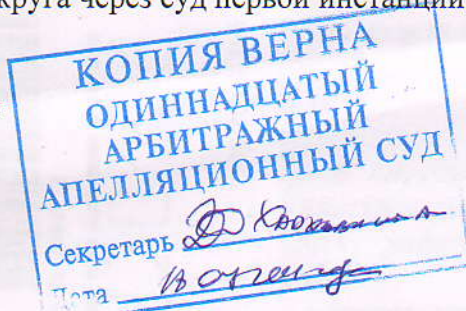 округа через суд первой инстанции
КОПИЯ ВЕРНА
ОДИННАДЦАТЫЙ
АРБИТРАЖНЫЙ
АПЕЛЛЯЦИОННЫЙ СУД
Секретарь
Дата